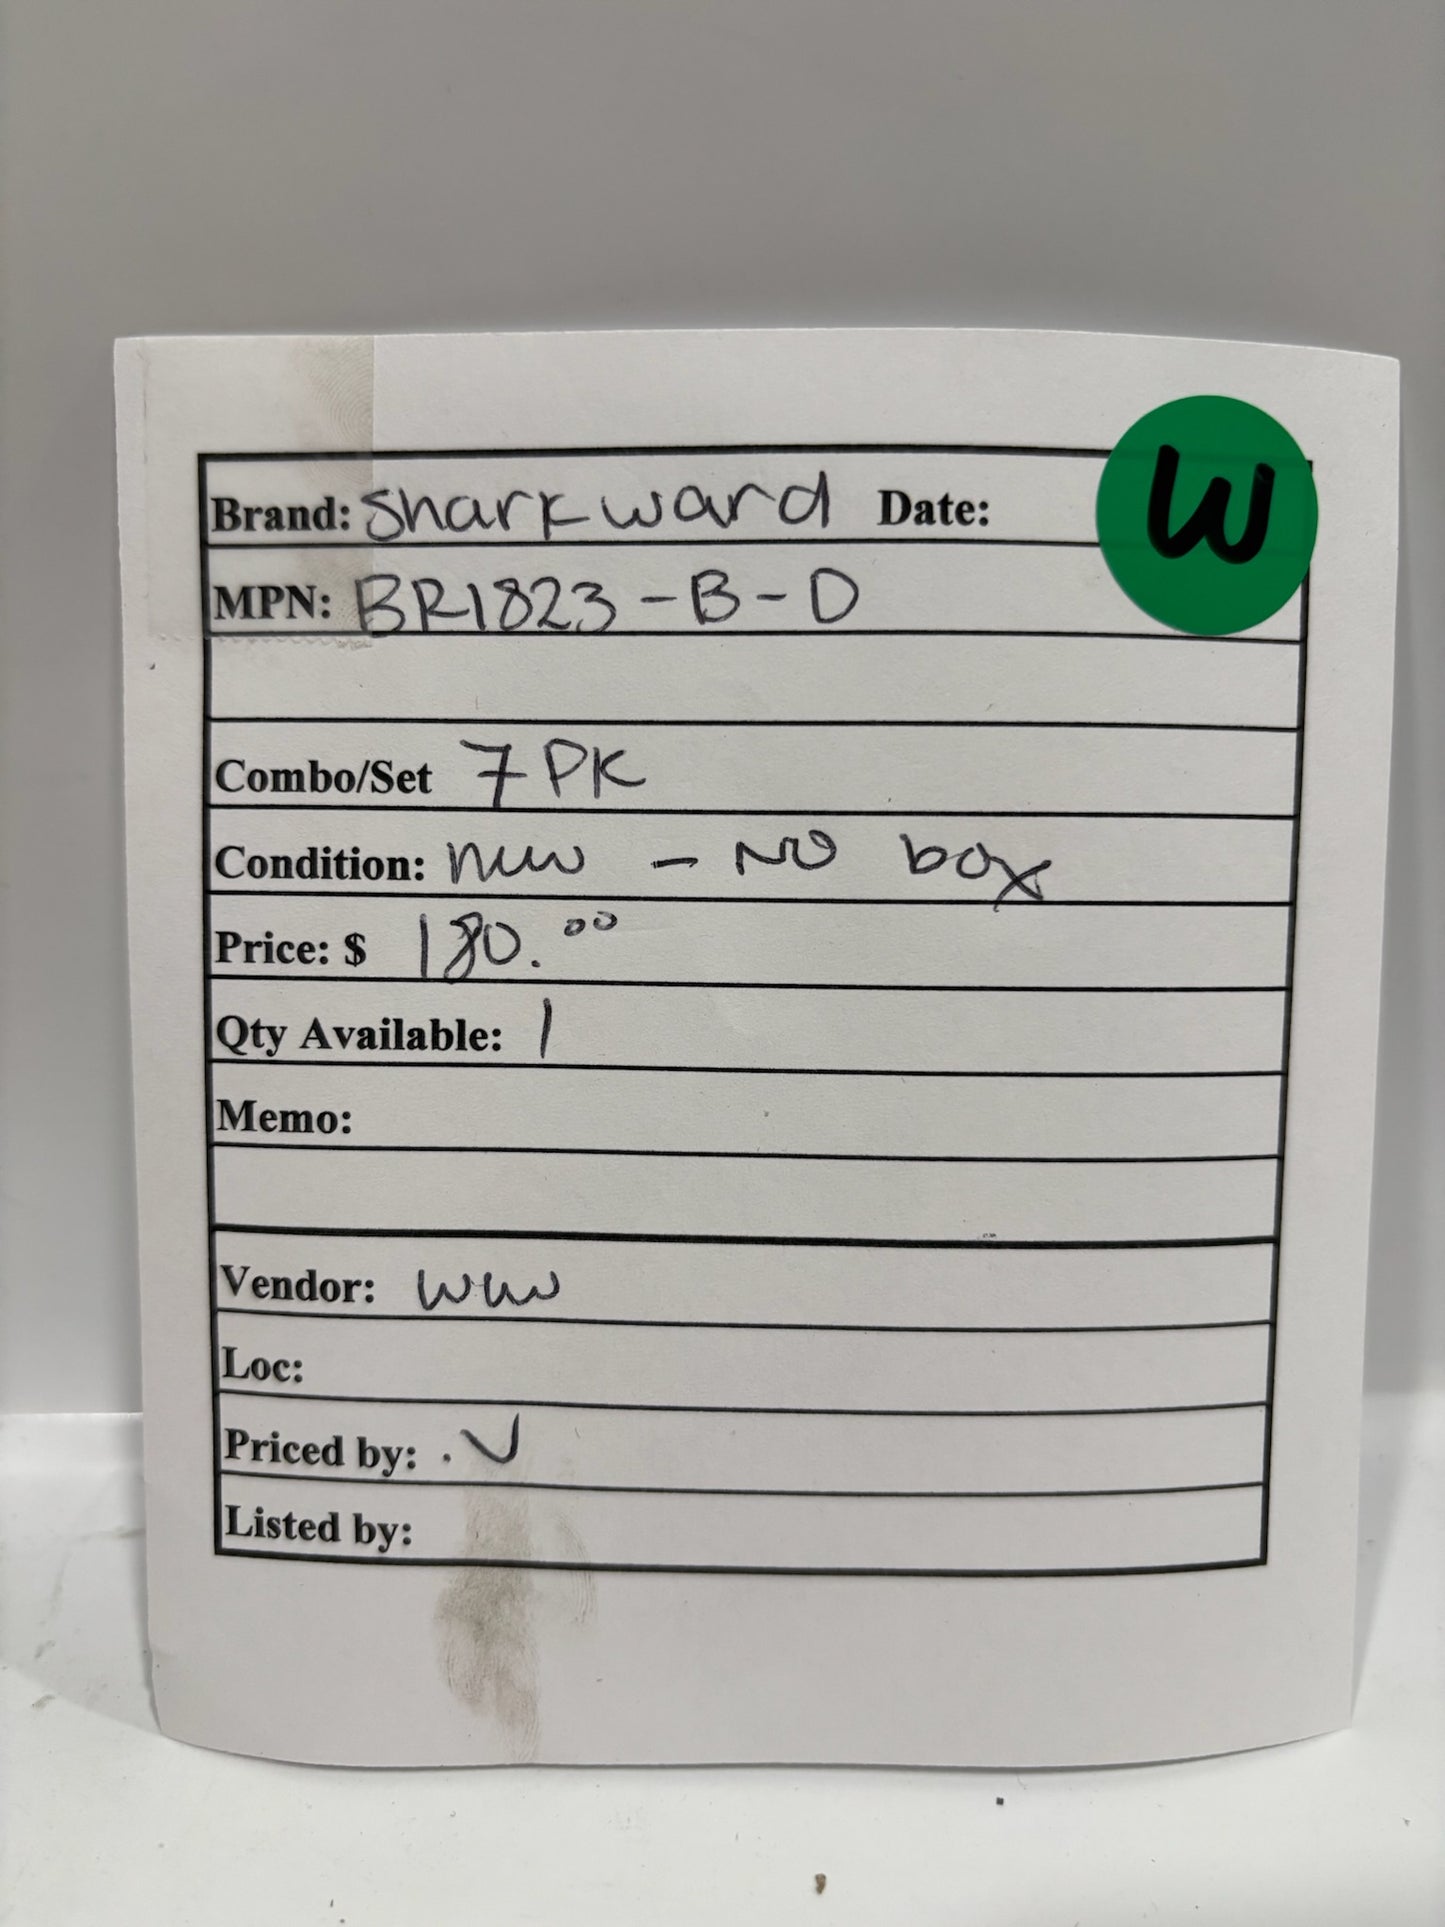 W
Brand: Sharkward Date:
MPN: BR1823-B-D
Combo/Set 7 PK
Condition: new - NO box
Price: $ 180.00
Qty Available: 1
Memo:
Vendor: WW
Loc:
Priced by: .V
Listed by: